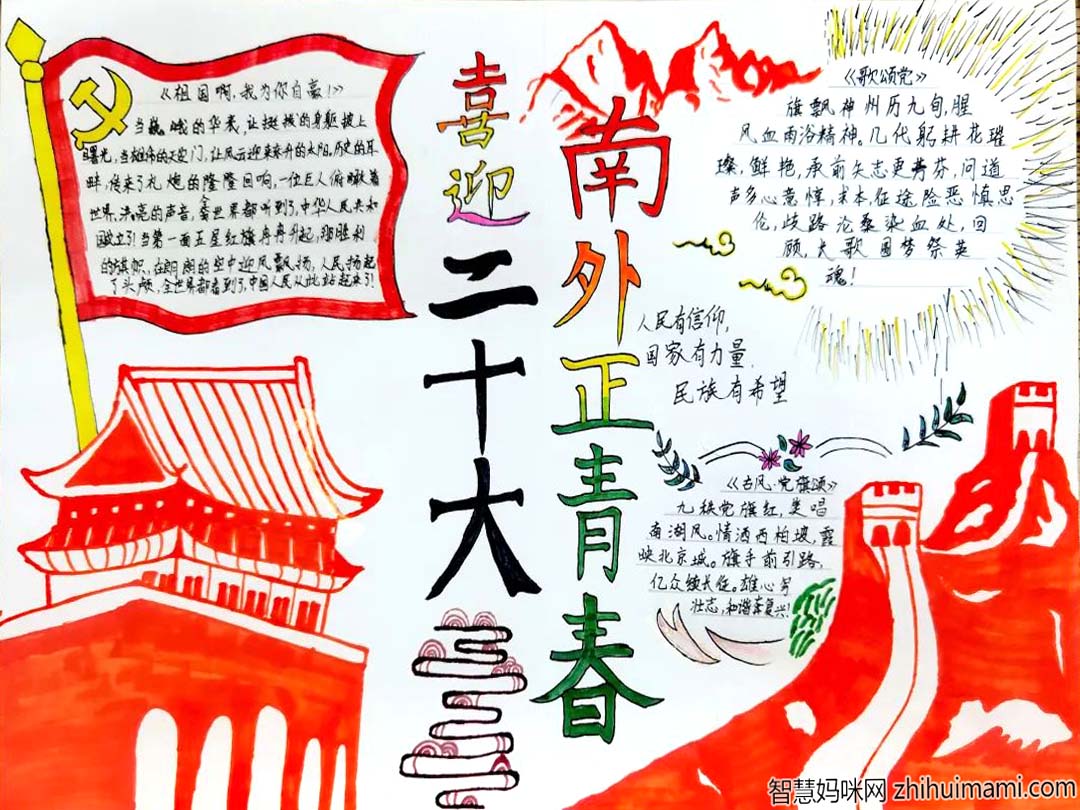 《祖国啊,我为你自豪!》
当巍峨的华表,让挺拔的身躯披上
曙光,当雄伟的天安门,让风云迎来东升的太阳。历史的耳
畔,传来了礼炮的隆隆回响,一位巨人俯瞰着
世界,洪亮的声音,全世界都听到了,中华人民共和
国成立了!当第一面五星红旗冉冉升起,那胜利
的旗帜,在朗朗的空中迎风飘扬,人民扬起
了头颅,全世界都看到了,中国人民从此站起来了!
喜迎二十大
南外正青春
《歌颂党》
旗飘神州历九旬,腥
风血雨浴精神。几代躬耕花璀
璨,鲜艳,承前矢志更菁芬,问道
声多心意惇,求本征途险恶慎思
伦,歧路沦桑染血处,回
顾,大歌圆梦祭英
魂!
人民有信仰,
国家有力量,
民族有希望
《古风·党旗颂》
九秩党旗红,美唱
南湖风。情洒西柏坡,霞
映北京城。旗手前引路,
亿众续长征。雄心写
壮志,和谐奔复兴!
智慧妈咪网 zhihuimami.com